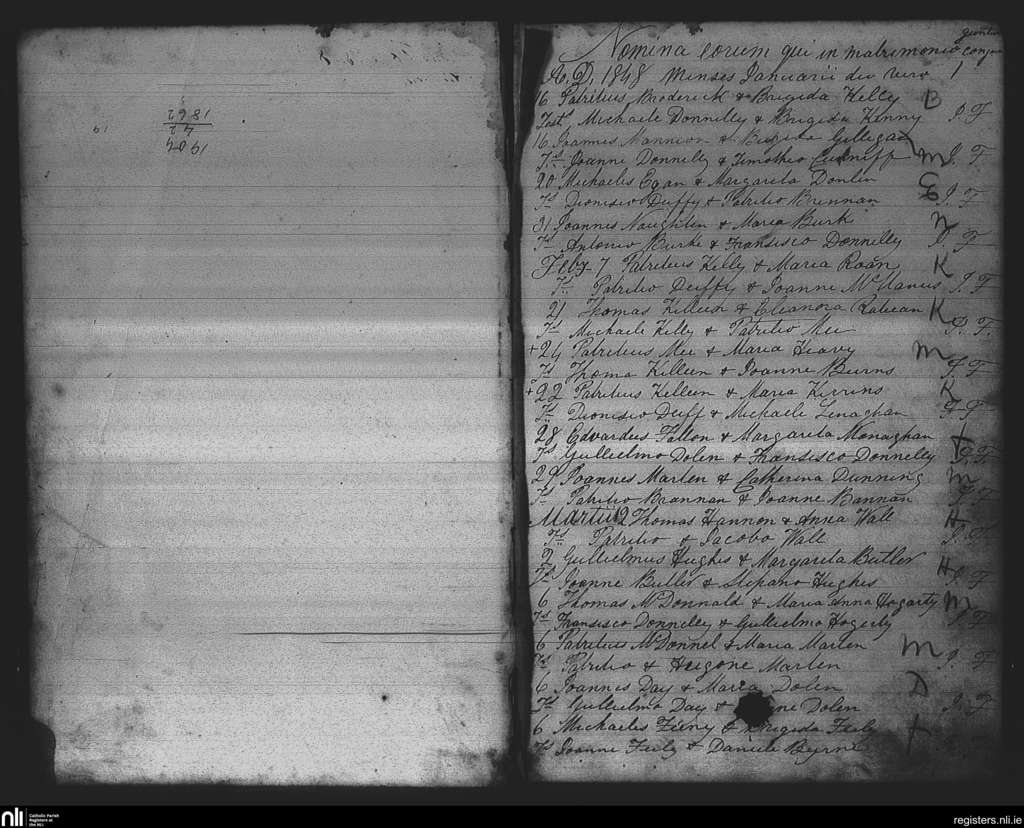 1862
42
1904
19
Nomina eorum qui in matrimonio conjuncti
A.D. 1848 Menses Januarii die vero 1
16 Patritius Broderick & Brigida Kelly B
Test Michaele Donnelley & Brigida Kenny J. F
16 Joannis Mannion & Brigida Gilligan
Ts Joanne Donnelly & Timotheo Cunniff m J. F
20 Michaelis Egan & Margarita Donlin E
Ts Dionisio Duffy & Patritio Brennan J. F
31 Joannis Naughten & Maria Burk n
Ts Antonio Burke & Fransisco Donnelley J. F
Feby 7 Patritius Kelly & Maria Roan K
Ts Patritio Duffy & Joanne McManus J. F
21 Thomas Killeen & Eleanora K
Ts Michaele Kelly & Patritio Mee J. F.
+ 24 Patritius Mee & Maria Heavy m
Ts Thoma Killeen & Joanne Burns J. F
+ 22 Patritius Killeen & Maria Kirrins K
Ts Dionisio Duff & Michaele Lenaghan J. F
28 Edvardus Fallon & Margarita Monaghan F
Ts Gullielmo Dolen & Fransisco Donneley J. F.
29 Joannes Marten & Catherina Dunning m
Ts Patritio Brannan & Joanne Bannan J. F
Martii 2 Thomas Hannon & Anna Wall H
Ts Patritio & Jacobo Wall J. F
2 Gullielmus Hughes & Margarita Butler H
Ts Joanne Butler & Stepano Hughes J. F
6 Thomas McDonnald & Maria Anna Hogarty m
Ts Fransisco Donnelley & Gullielmo Hogerty J. F
6 Patritius McDonnel & Maria Marten m
Ts Patritio & Heugone Marten J. F
6 Joannis Day & Maria Dolen D
Ts Gullielmo Day & ne Dolen J. F
6 Michaeles Finy & Brigida Feily F
Ts Joanne Feily & Daniele Byrne
nli Catholic Parish Registers at the NLI
registers.nli.ie